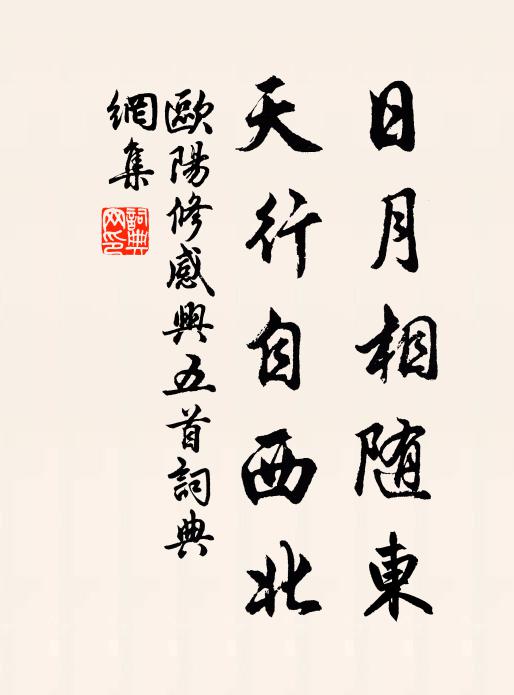 日月相随東
天行自西北
歐陽修感興五首詞典
網集
詞典網印